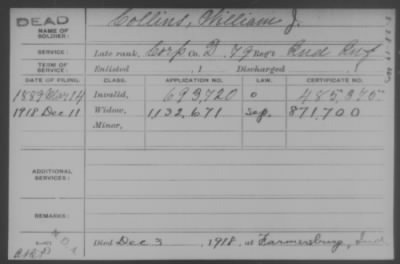 DEAD
NAME OF SOLDIER: Collins, William J.
SERVICE: Late rank, Corp Co. D, 79 Reg't Ind Inf
TERM OF SERVICE: Enlisted , 1 Discharged , 1
DATE OF FILING. CLASS. APPLICATION NO. LAW. CERTIFICATE NO.
1889 Mar 14 Invalid, 693,720 0 485,375
1918 Dec 11 Widow, 1,132,671 871,700
Minor,
ADDITIONAL SERVICES:
REMARKS:
Died Dec 3, 1918, at Farmersburg, Ind